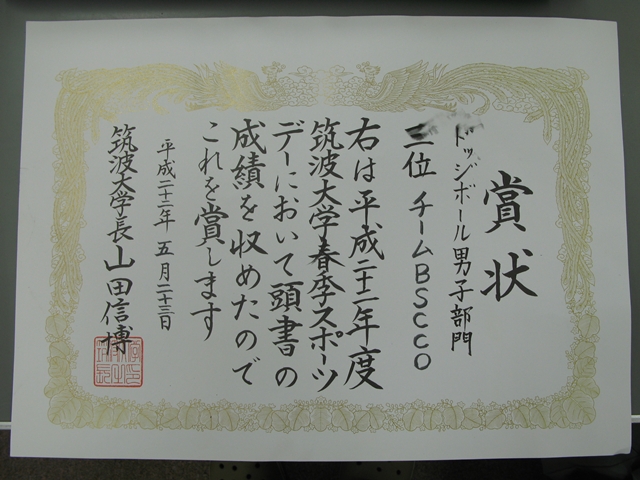 賞状
ドッジボール男子部門
三位 チームBSCCO
右は平成二十一年度
筑波大学春季スポーツ
デーにおいて頭書の
成績を収めたので
これを賞します
平成二十一年五月二十三日
筑波大学長 山田信博